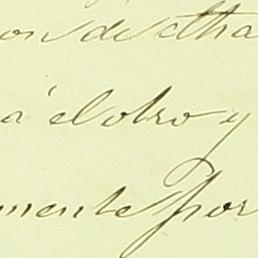 on de etha
a' el otro y
mente por